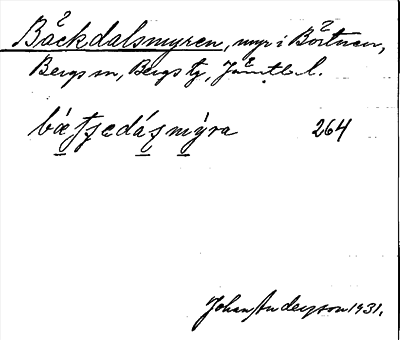 Bäckdalsmyren, myr i Börtnan,
Bergs sn, Bergs tg, Jämtl. l.
264
Johan Anderson 1931.